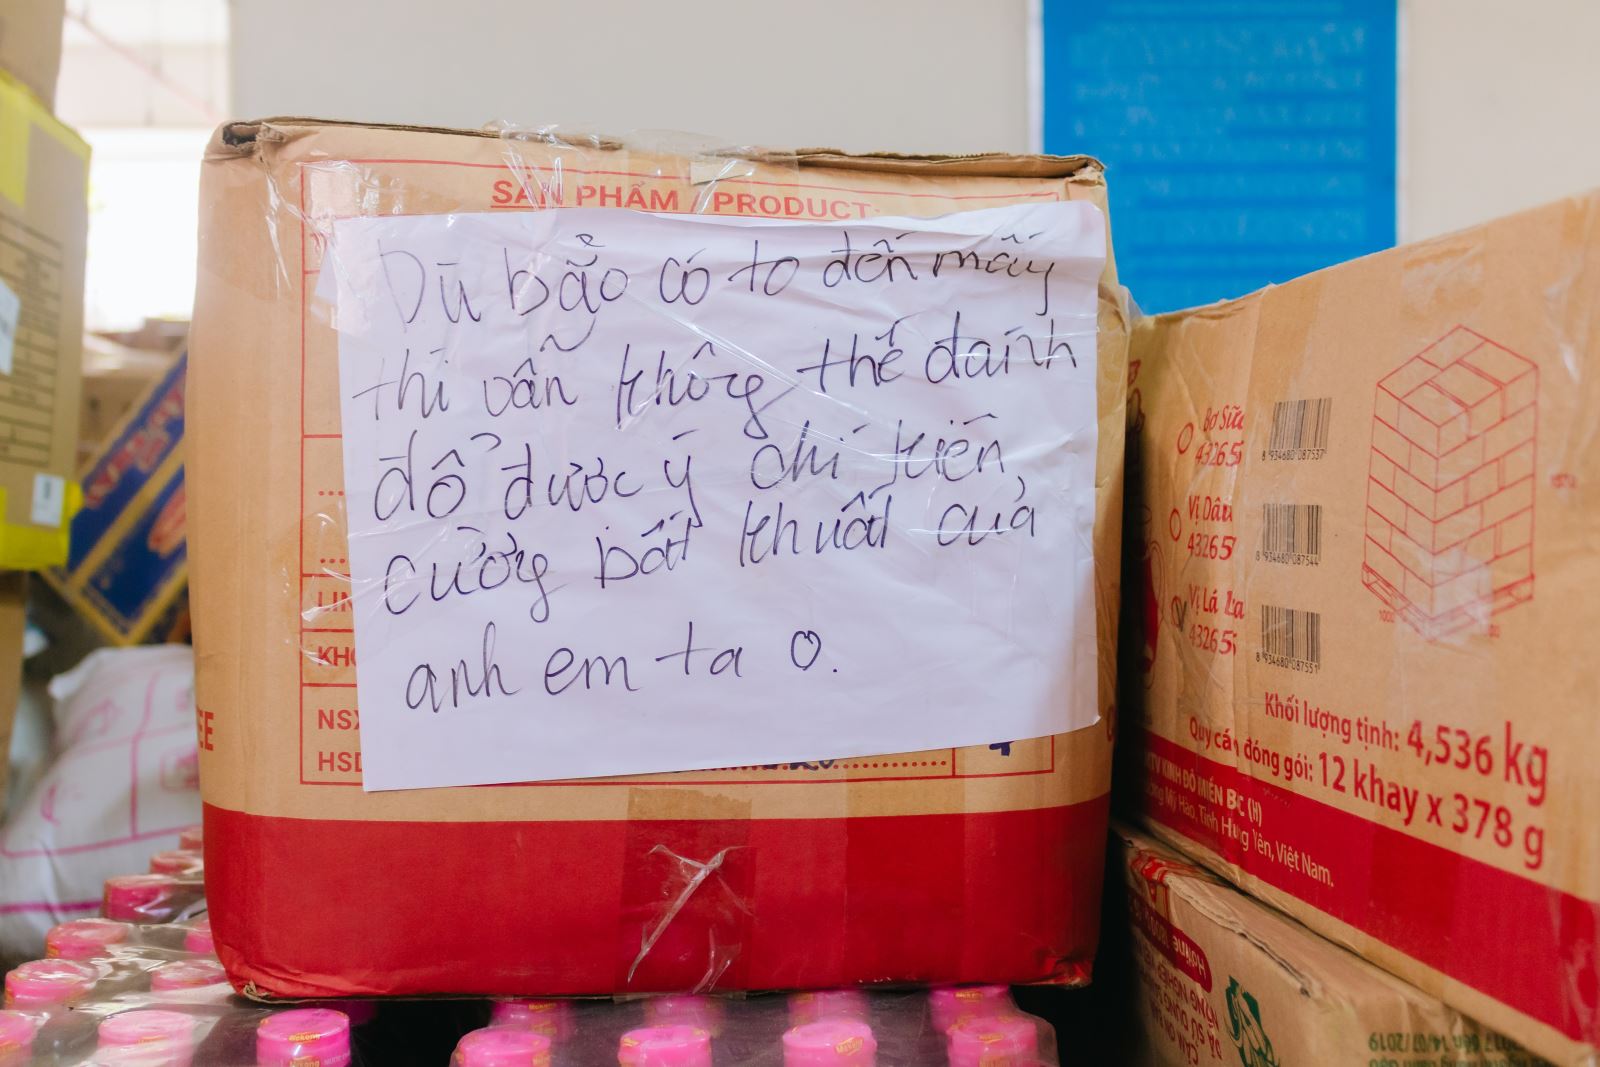 SẢN PHẨM / PRODUCT:
Dù bão có to đến mấy
thì vẫn không thể đánh
đổ được ý chí kiên
cường bất khuất của
anh em ta
KHO
NSX
HSD
EE
Bơ Sữa
43265
8 934680 087537
Vị Dâu
43265
8 934680 087544
Vị Lá
43265
8 934680 087551
Khối lượng tịnh: 4,536 kg
Quy cách đóng gói: 12 khay x 378 g
KINH ĐÔ MIỀN BẮC (H)
Mỹ Hào, Tỉnh Hưng Yên, Việt Nam.
Hotline
14/07/2019